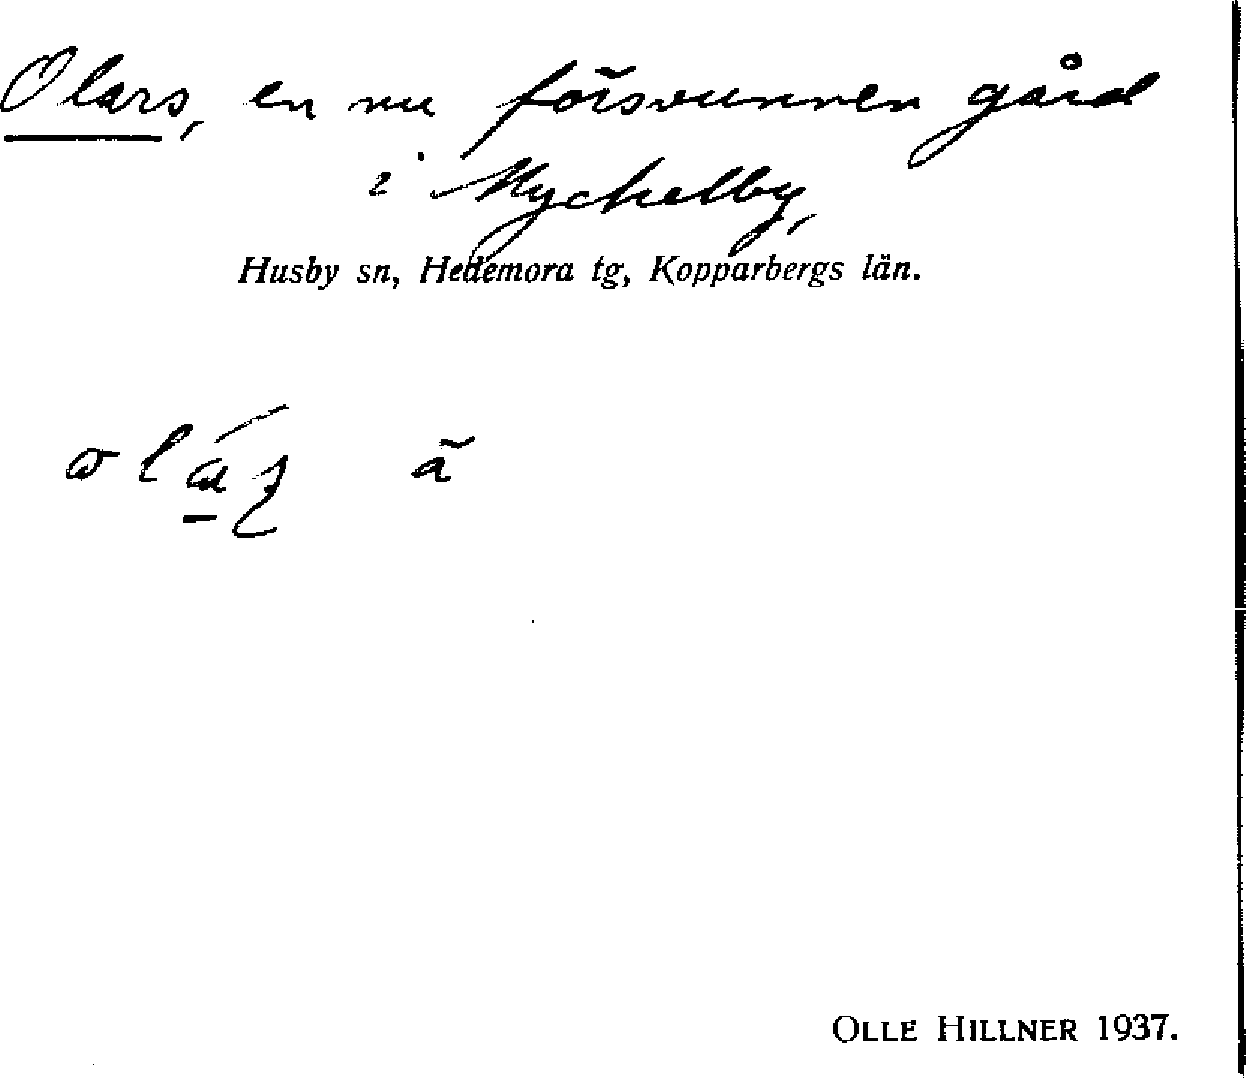 Olars, en nu försvunnen gård
i Myckelby,
Husby sn, Hedemora tg, Kopparbergs län.
OLLE HILLNER 1937.